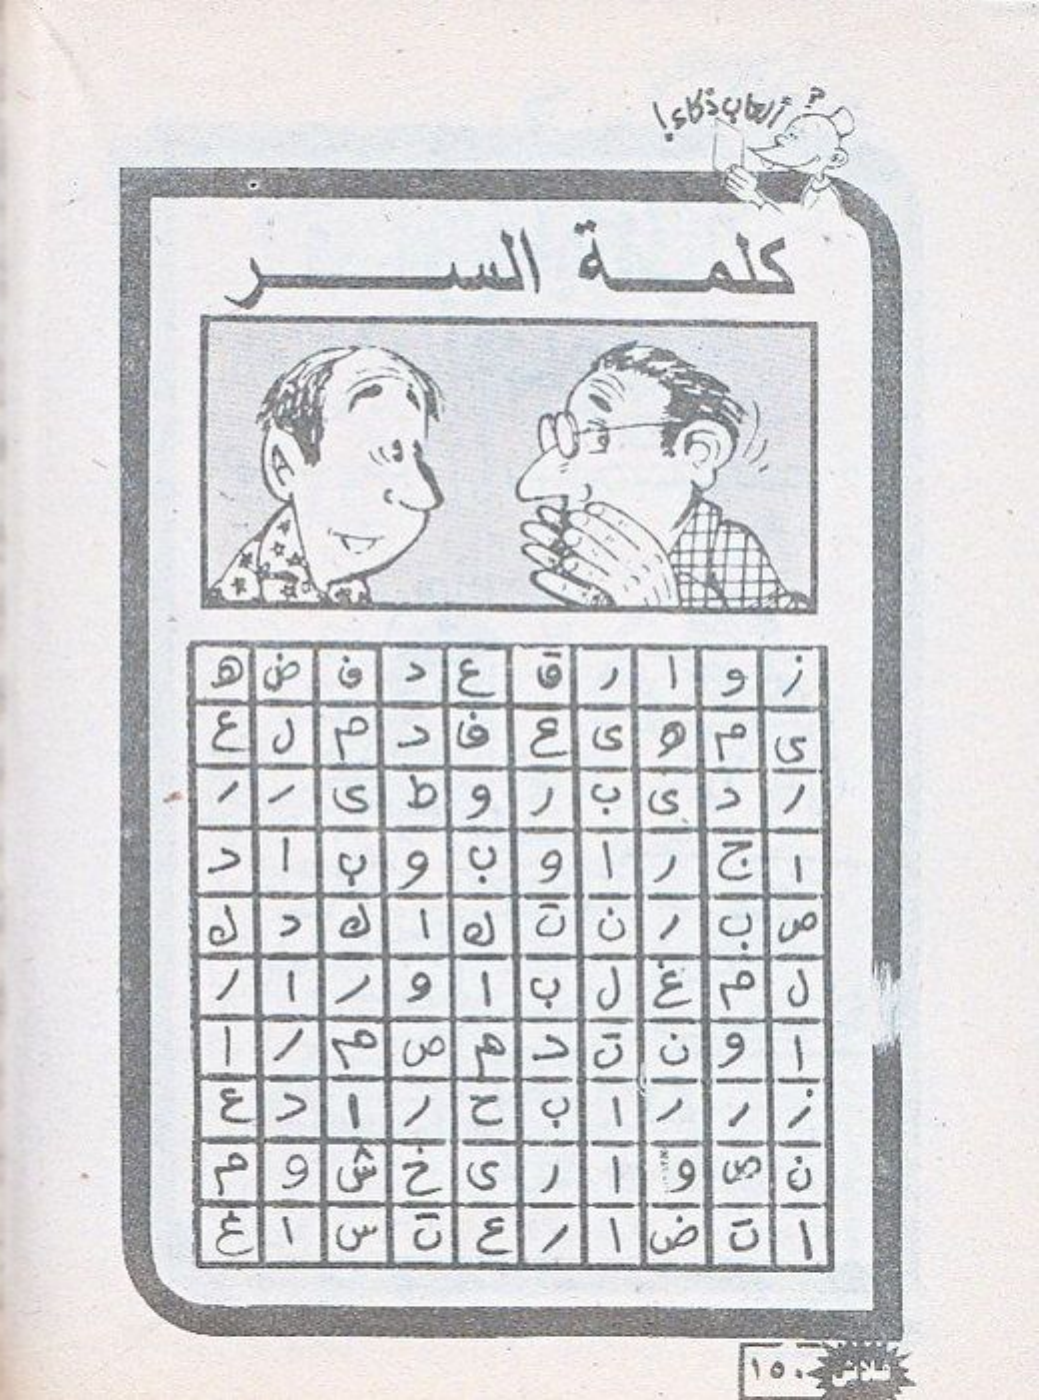 ألعاب ذكاء!
?
كلمة السر
ز و ا ر ق ع د ف ض ه
ى م ه ى ع ف د م ل ع
ر د ى ب ر و ط ى ر ر
ا ج ر ا و ب و ب ا د
ص ب ر ن ت ك ا ك د ك
ل م غ ل ب ا و ر ا ر
ا و ن ت د م ص م ر ا
ز ر ر ا ب ح ر ا د ع
ن ى و ا ر ى خ ش و م
ا ت ض ا ر ع ت س ا غ
١٥٠
فلاش